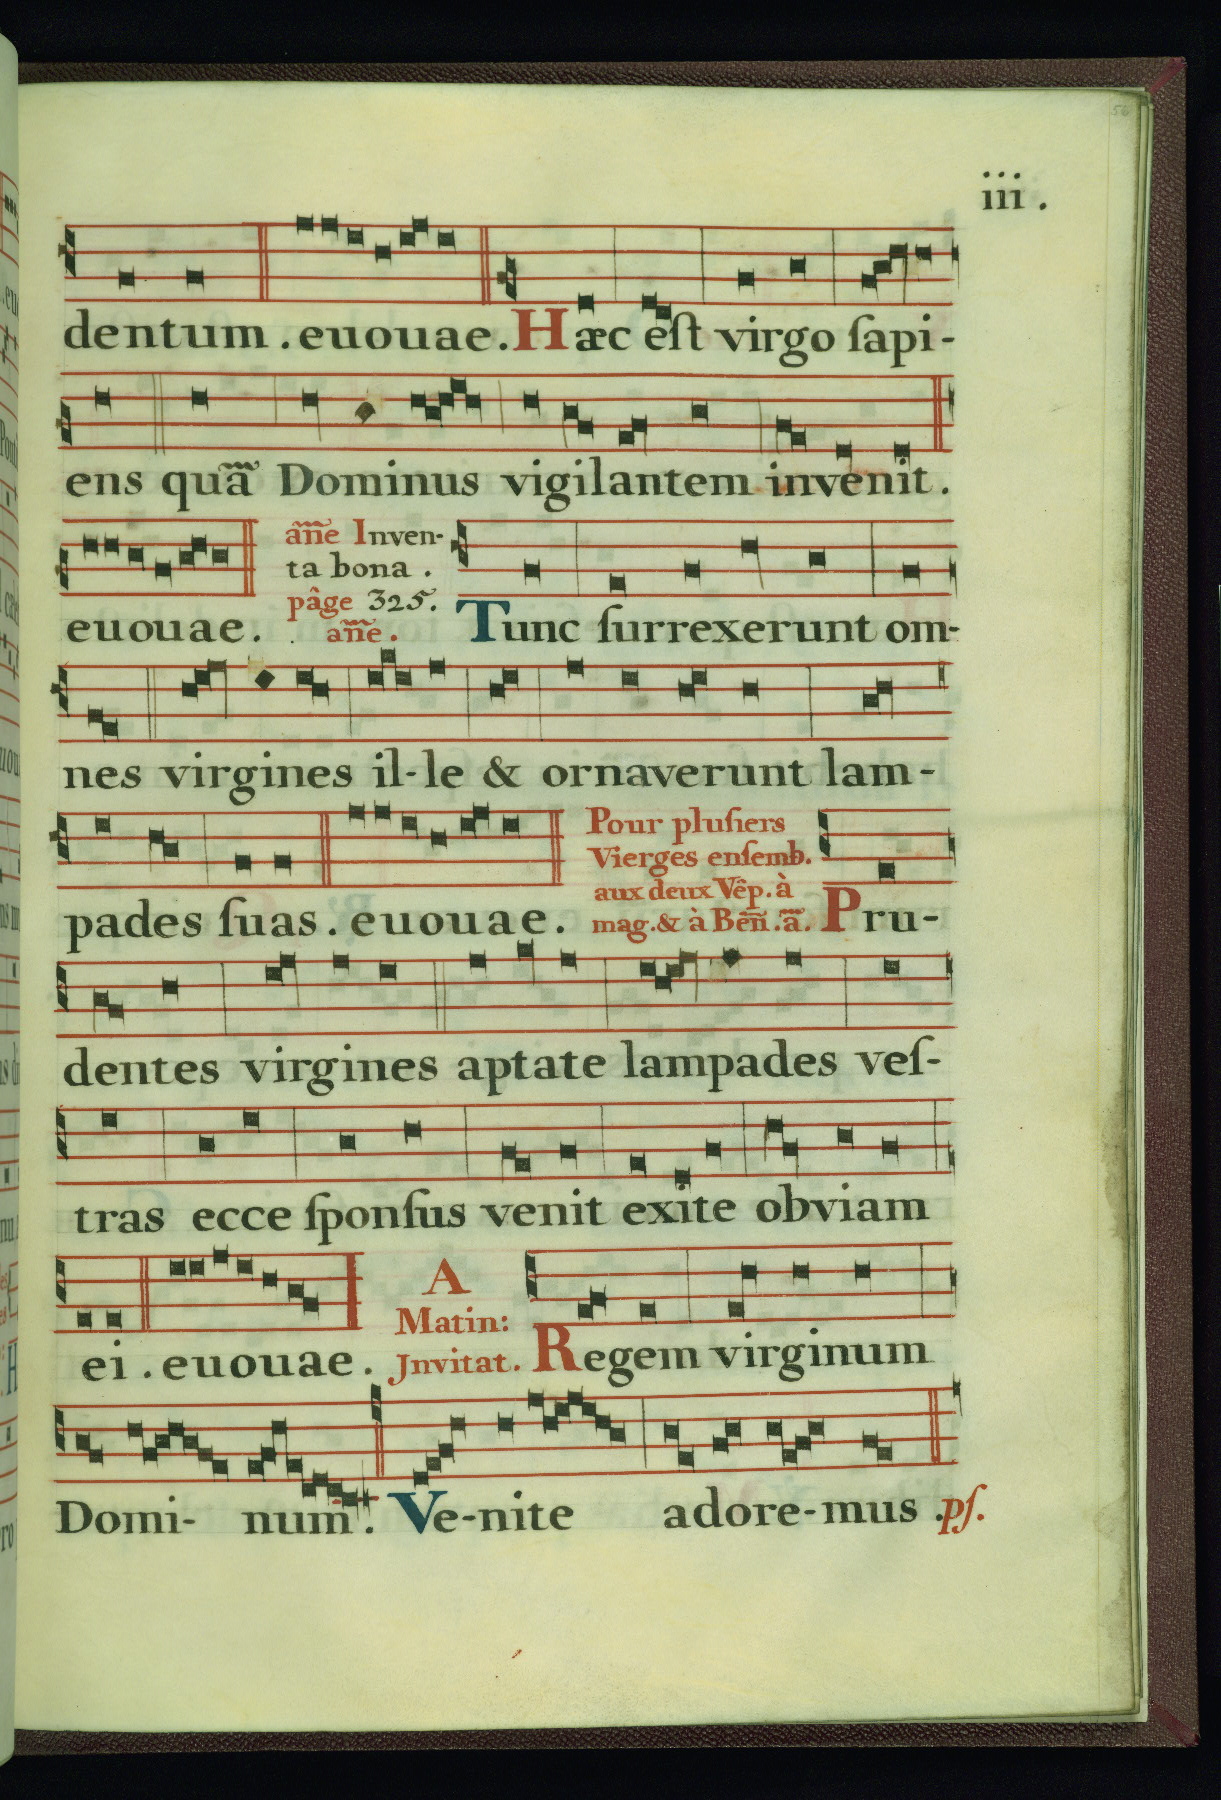 56
iii.
dentum. euouae. Hæc eſt virgo ſapi-
ens quã Dominus vigilantem invenit.
añe Inven-
ta bona.
pâge 325.
euouae. añe. Tunc ſurrexerunt om-
nes virgines il-le & ornaverunt lam-
Pour pluſiers
Vierges enſemb.
aux deux Vêp. à
mag. & à Beñ. ã.
pades ſuas. euouae. Pru-
dentes virgines aptate lampades veſ-
tras ecce ſponſus venit exite obviam
A
Matin:
Jnvitat.
ei. euouae. Regem virginum
Domi- num. Ve-nite adore-mus. pſ.